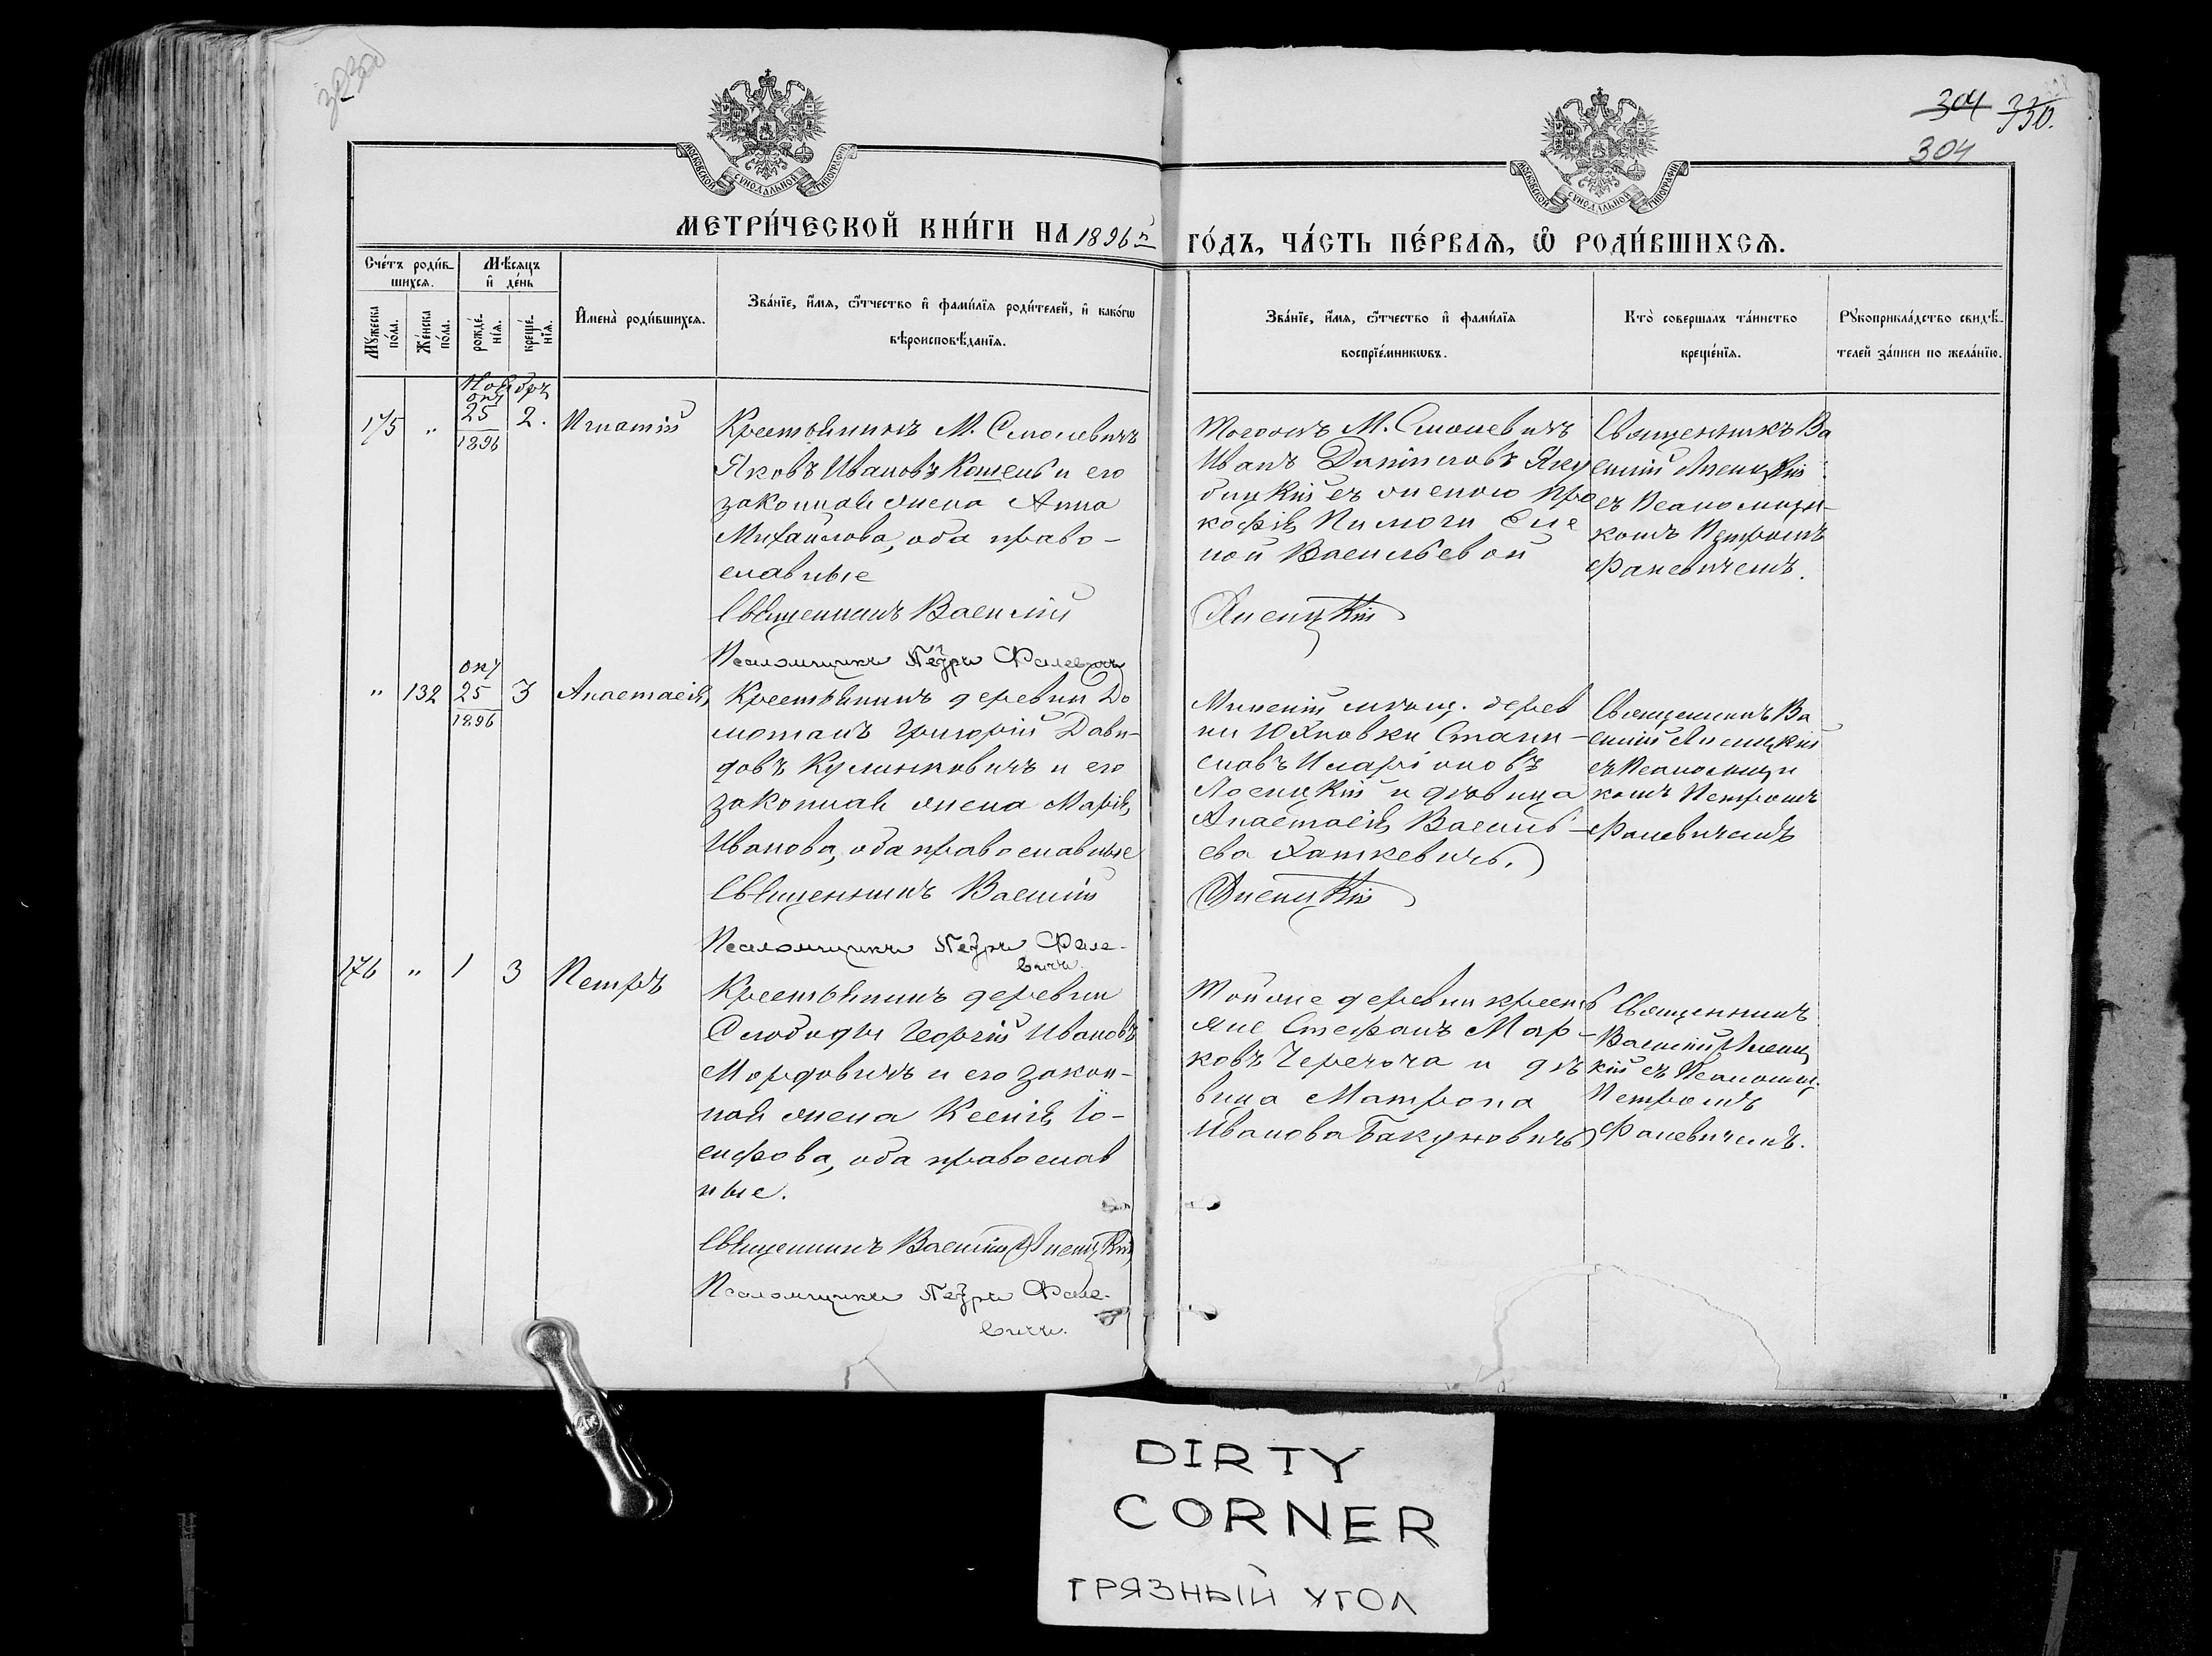 304 330.
304
МОСКОВСКОЙ СУНОДАЛЬНОЙ ТИПОГРАФІИ
МОСКОВСКОЙ СУНОДАЛЬНОЙ ТИПОГРАФІИ
МЕТРИ́ЧЕСКОЙ КНИ́ГИ НА 1896й
ГО́ДЪ, ЧА́СТЬ ПЕ́РВАѦ, Ѽ РОДИ́ВШИХСѦ.
Сче́тъ роди́в-
шихсѧ.
Мꙋ́жеска по́ла.
Же́нска по́ла.
Мѣ́сѧцъ
и҆ де́нь
рожде́-
нїѧ.
креще́-
нїѧ.
И҆мена̀ роди́вшихсѧ.
Зва́нїе, и҆́мѧ, ѻ҆́тчество и҆ фами́лїѧ роди́телей, и҆ како́гѡ
вѣроисповѣ́данїѧ.
Зва́нїе, и҆́мѧ, ѻ҆́тчество и҆ фами́лїѧ
воспрїе́мникѡвъ.
Кто̀ соверша́лъ та́инство
креще́нїѧ.
Рꙋкоприкла́дство свидѣ́-
телей за́писи по жела́нїю.
Ноябрь
окт
175 " 25 2. Игнатій
1896
Крестьянинъ М. Смолевичъ
Яковъ Ивановъ Кошель и его
законная жена Анна
Михайлова, оба право-
славные
Священникъ Василій
Псаломщикъ Петръ Фалевичъ
Тогожъ М. Смолевичъ
Иванъ Данииловъ Яку
бицкій съ женою Про
кофія Пилюги Еле
ной Васильевой
Лисицкій
Священникъ Ва
силій Лисицкій
съ Псаломщи-
комъ Петромъ
Фалевичемъ.
окт
" 132 25 3 Анастасія
1896
Крестьянинъ деревни До
мотанъ Григорій Дави-
довъ Кулинковичъ и его
законная жена Марія
Иванова, оба православные
Священникъ Василій
Псаломщикъ Петръ Фале-
вичъ.
Минскій мѣщ. дерев
ни Юхновки Стани-
славъ Иларіоновъ
Лосицкій и дѣвица
Анастасія Василь-
ева Хаткевичъ.
Лисицкій
Священникъ Ва
силій Лисицкій
съ Псаломщи
комъ Петромъ
Фалевичемъ
176 " 1 3 Петръ
Крестьянинъ деревни
Слободы Георгій Ивановъ
Мордовичъ и его закон-
ная жена Ксенія Іо-
сифова, оба православ
ные.
Священникъ Василій Лисицкій
Псаломщикъ Петръ Фале-
вичъ.
Тойже деревни кресть
яне Стефанъ Мар-
ковъ Черноча и дѣ
вица Матрона
Иванова Бакуновичъ
Священникъ
Василій Лисиц
кій съ Псаломщ.
Петромъ
Фалевичемъ.
DIRTY
CORNER
ГРЯЗНЫЙ УГОЛ